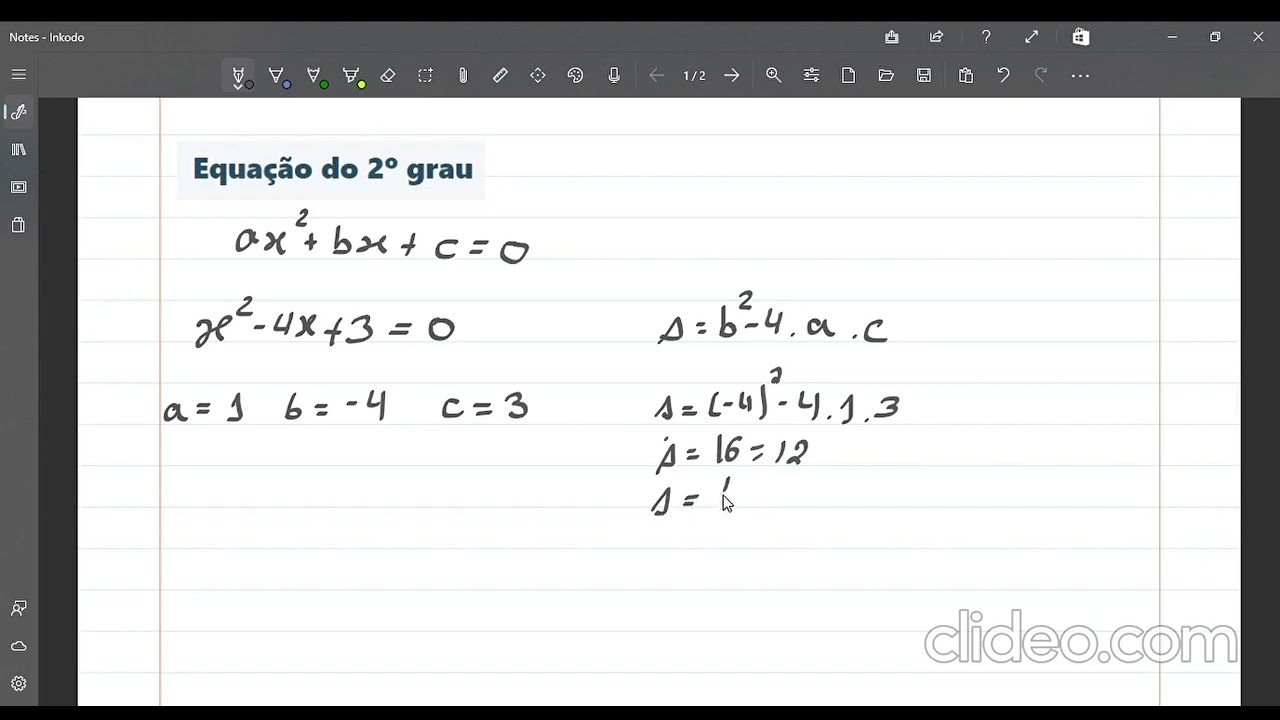 Notes - Inkodo
1/2
Equação do 2º grau
ax²+bx+c=0
x²-4x+3=0
Δ=b²-4.a.c
a=1 b=-4 c=3
Δ=(-4)²-4.1.3
Δ=16=12
Δ=
clideo.com